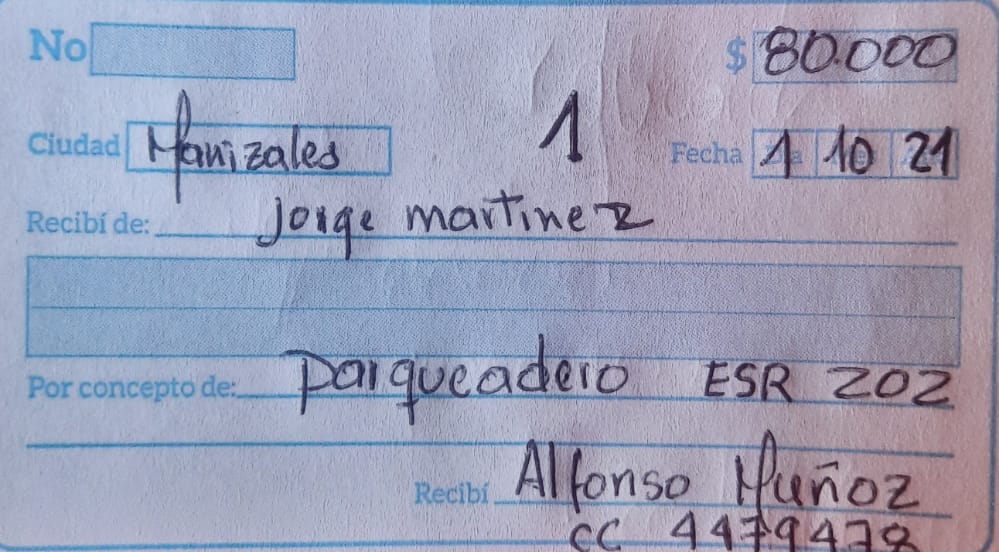 No $ 80.000
Ciudad Manizales 1 Fecha 1 10 21
Recibí de: Jorge martinez
Por concepto de: parqueadero ESR 202
Recibí Alfonso Muñoz
CC 4479478